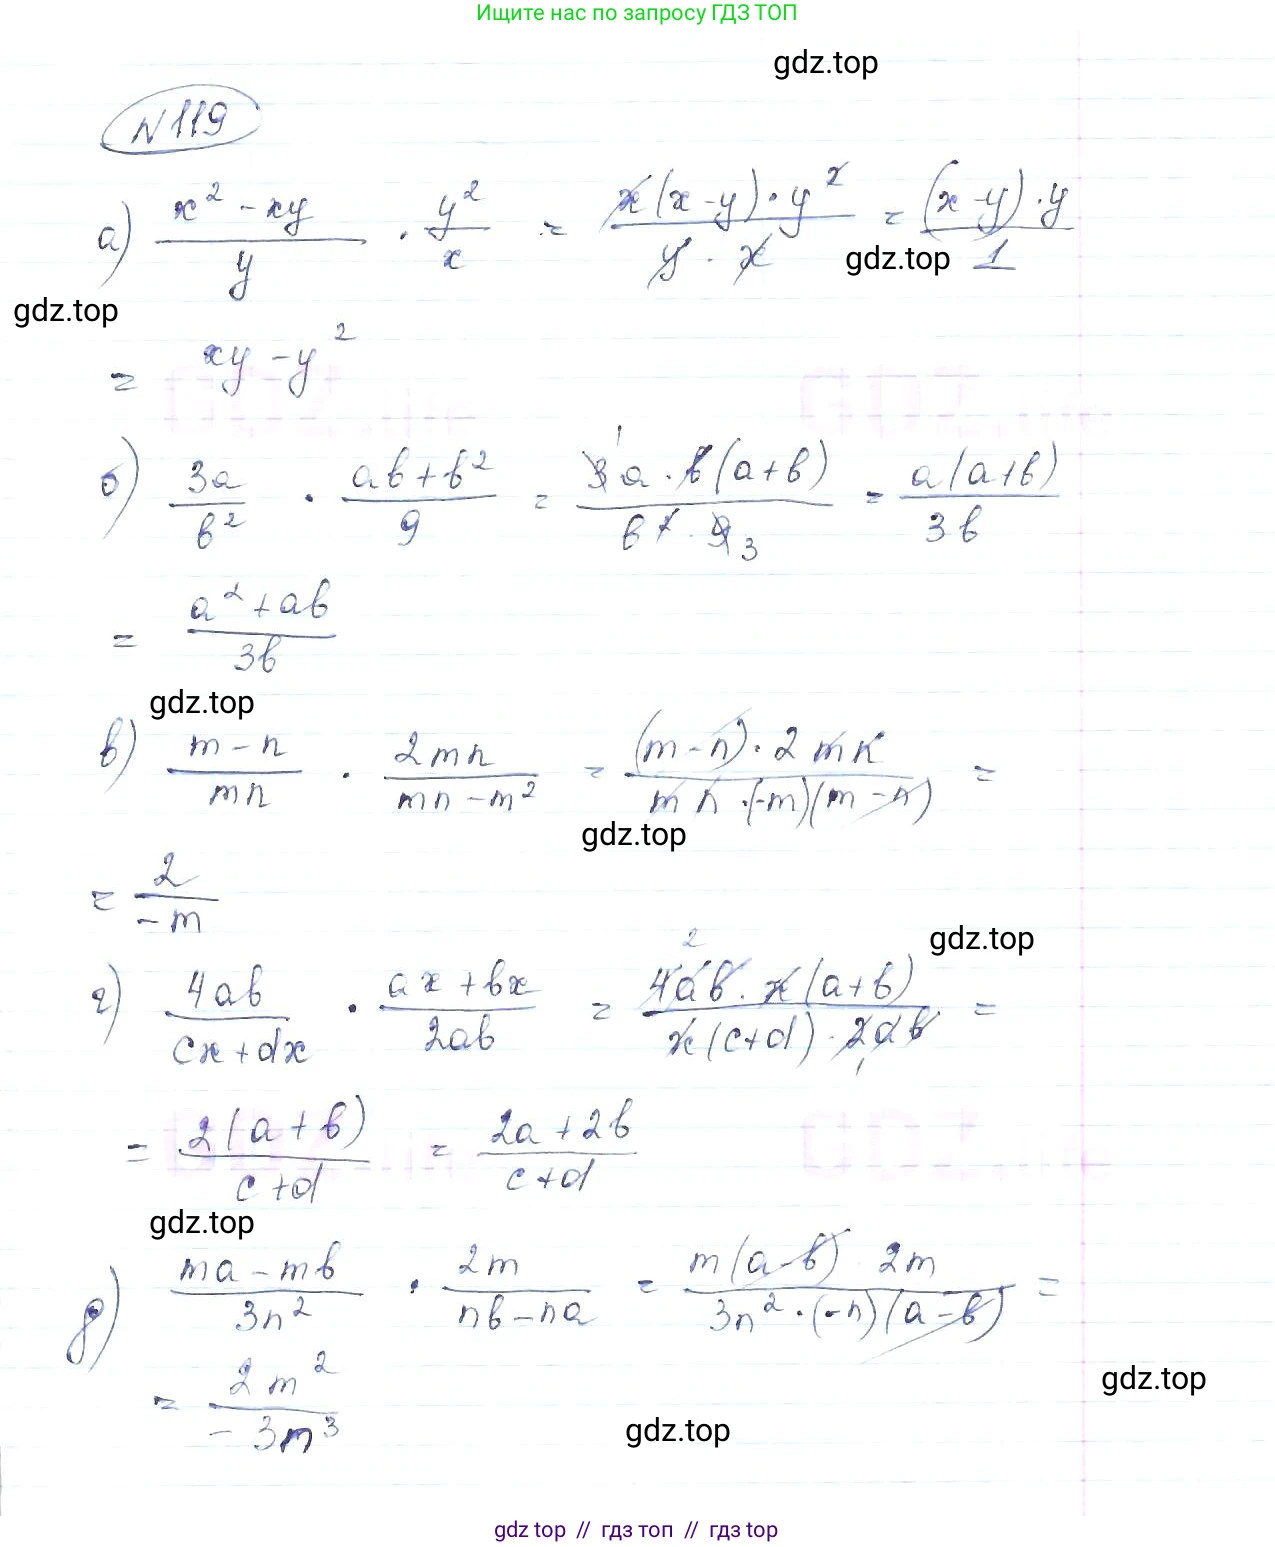 Ищите нас по запросу ГДЗ ТОП
gdz.top
N119
а) (x² - xy)/y · y²/x = (x(x-y)·y²)/(y·x) = ((x-y)·y)/1
gdz.top
gdz.top
= xy - y²
б) 3a/b² · (ab+b²)/9 = (3a·b(a+b))/(b²·9) = (a(a+b))/3b
1
3
= (a²+ab)/3b
gdz.top
в) (m-n)/mn · 2mn/(mn-m²) = ((m-n)·2mn)/(mn·(-m)(m-n)) =
gdz.top
= 2/-m
gdz.top
г) 4ab/(cx+dx) · (ax+bx)/2ab = (4ab·x(a+b))/(x(c+d)·2ab) =
2
1
= 2(a+b)/(c+d) = (2a+2b)/(c+d)
gdz.top
д) (ma-mb)/3n² · 2m/(nb-na) = (m(a-b) 2m)/(3n²·(-n)(a-b)) =
gdz.top
= 2m²/-3n³
gdz.top
gdz top // гдз топ // gdz top